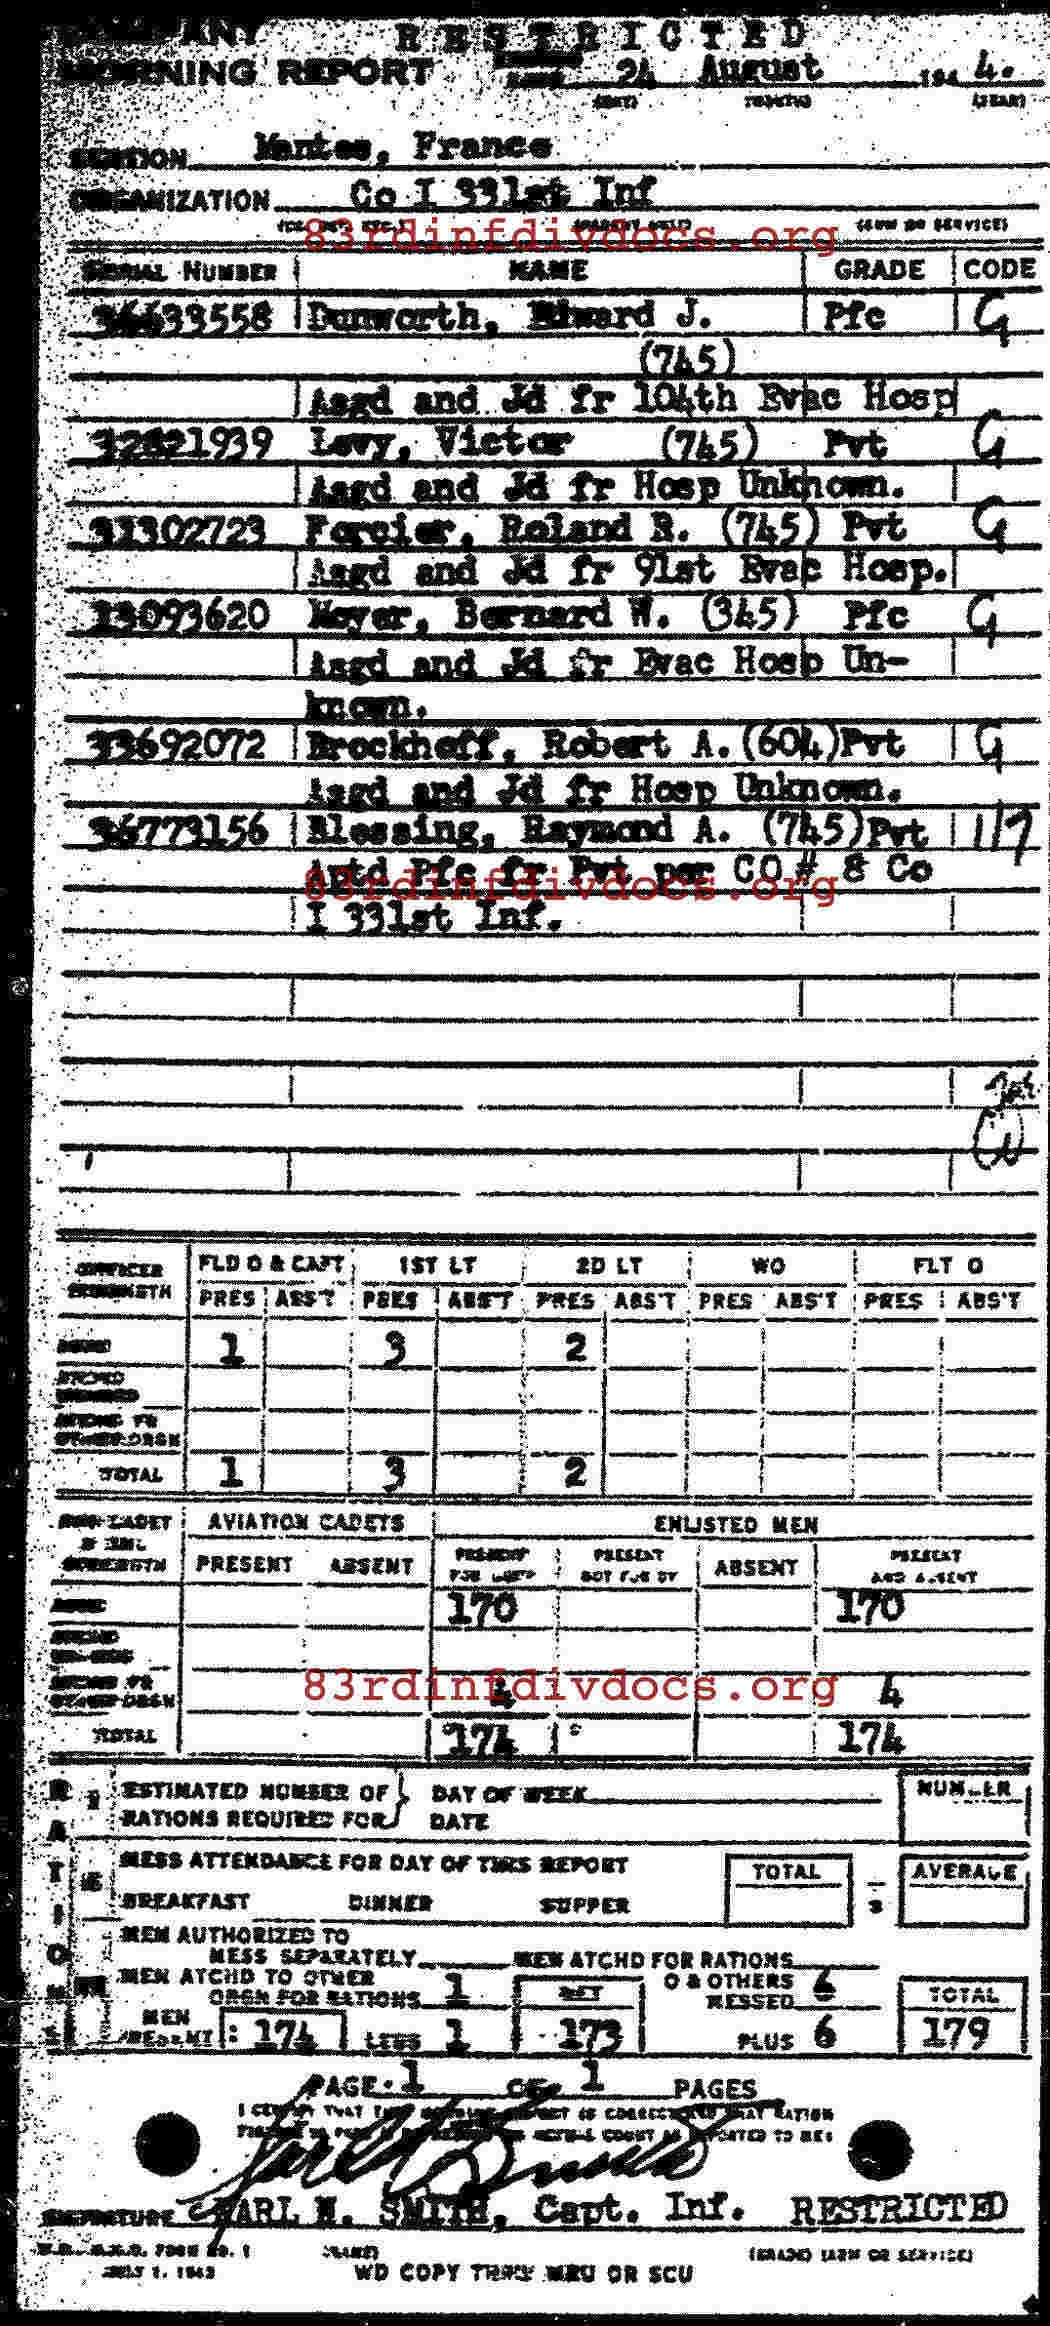 COMPANY RESTRICTED
MORNING REPORT 24 August 194 4.
(DAY) (MONTH) (YEAR)
STATION Mantes, France
ORGANIZATION Co I 331st Inf
(PARENT UNIT) (ARM OR SERVICE)
83rdinfdivdocs.org
SERIAL NUMBER NAME GRADE CODE
36633558 Dunworth, Edward J. Pfc G
(745)
Asgd and Jd fr 104th Evac Hosp
32821939 Levy, Victor (745) Pvt G
Asgd and Jd fr Hosp Unknown.
31302723 Forcier, Roland R. (745) Pvt G
Asgd and Jd fr 91st Evac Hosp.
13093620 Moyer, Bernard W. (345) Pfc G
Asgd and Jd fr Evac Hosp Un-
known.
33692072 Brockhoff, Robert A. (604) Pvt G
Asgd and Jd fr Hosp Unknown.
36773156 Blessing, Raymond A. (745) Pvt
Aptd Pfc fr Pvt per CO # 8 Co
83rdinfdivdocs.org
I 331st Inf.
OFFICER STRENGTH FLD O & CAPT 1ST LT 2D LT WO FLT O
PRES ABS'T PRES ABS'T PRES ABS'T PRES ABS'T PRES ABS'T
1 3 2
TOTAL 1 3 2
AVIATION CADETS ENLISTED MEN
STRENGTH PRESENT ABSENT PRESENT FOR DUTY PRESENT NOT FOR DY ABSENT PRESENT AND ABSENT
170 170
83rdinfdivdocs.org
4 4
TOTAL 174 174
RATIONS
ESTIMATED NUMBER OF DAY OF WEEK NUMBER
RATIONS REQUIRED FOR DATE
MESS ATTENDANCE FOR DAY OF THIS REPORT TOTAL AVERAGE
BREAKFAST DINNER SUPPER
MEN AUTHORIZED TO
MESS SEPARATELY MEN ATCHD FOR RATIONS
MEN ATCHD TO OTHER O & OTHERS
ORGN FOR RATIONS 1 NET MESSED 6 TOTAL
MEN PRESENT: 174 LESS 1 173 PLUS 6 179
PAGE 1 OF 1 PAGES
SIGNATURE EARL W. SMITH, Capt. Inf. RESTRICTED
(NAME) (GRADE) (ARM OR SERVICE)
JULY 1, 1943 WD COPY THRU MRU OR SCU